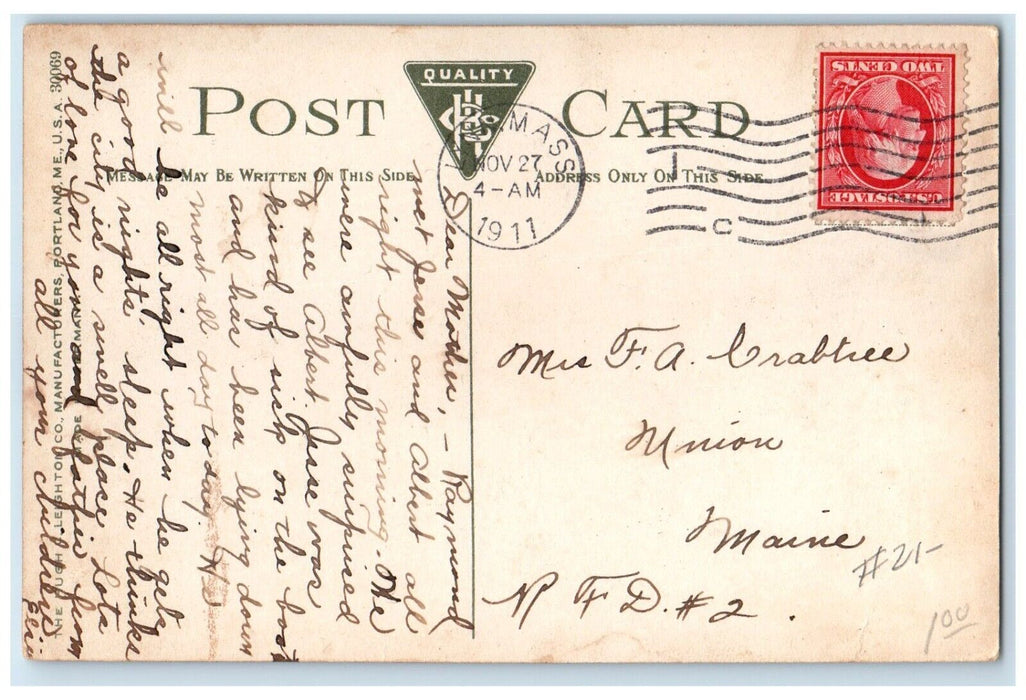 POST CARD
QUALITY
HL Co
MESSAGE MAY BE WRITTEN ON THIS SIDE
ADDRESS ONLY ON THIS SIDE
MASS
NOV 27
4-AM
1911
1
C
U.S. POSTAGE
TWO CENTS
Dear Mother, - Raymond
met Jesse and Albert all
right this morning. We
were awfully surprised
to see Albert. Jesse was
kind of sick on the boat
and has been lying down
most all day to-day. He
will
be all right when he gets
a good nights sleep. He thinks
the city is a swell place. Lots
of love for you and father from
all your children
Mrs F. A. Crabtree
Union
Maine
R F D. #2.
#21-
1 00
THE HUGH C. LEIGHTON CO., MANUFACTURERS, PORTLAND, ME., U.S.A. 30069
TRADE MARK